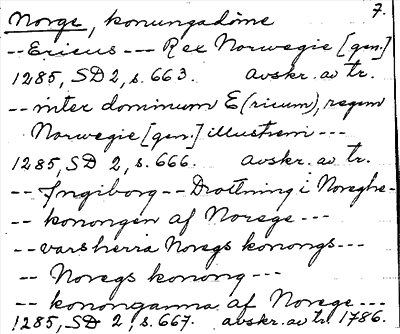 Norge, konungadöme 7.
-- Ericus --- Rex Norwegie [gen.]
1285, SD 2, s. 663. avskr. av tr.
-- inter dominum E(ricum), regem
Norwegie [gen.] illustrem ---
1285, SD 2, s. 666. avskr. av tr.
-- Jngiborg -- Drottning i Noreghe-
-- konongen af Norege ---
-- vars herra Noregs konongs ---
-- Noregs konong ---
-- kononganna af Norege ---
1285, SD 2, s. 667. avskr. av tr. 1786.